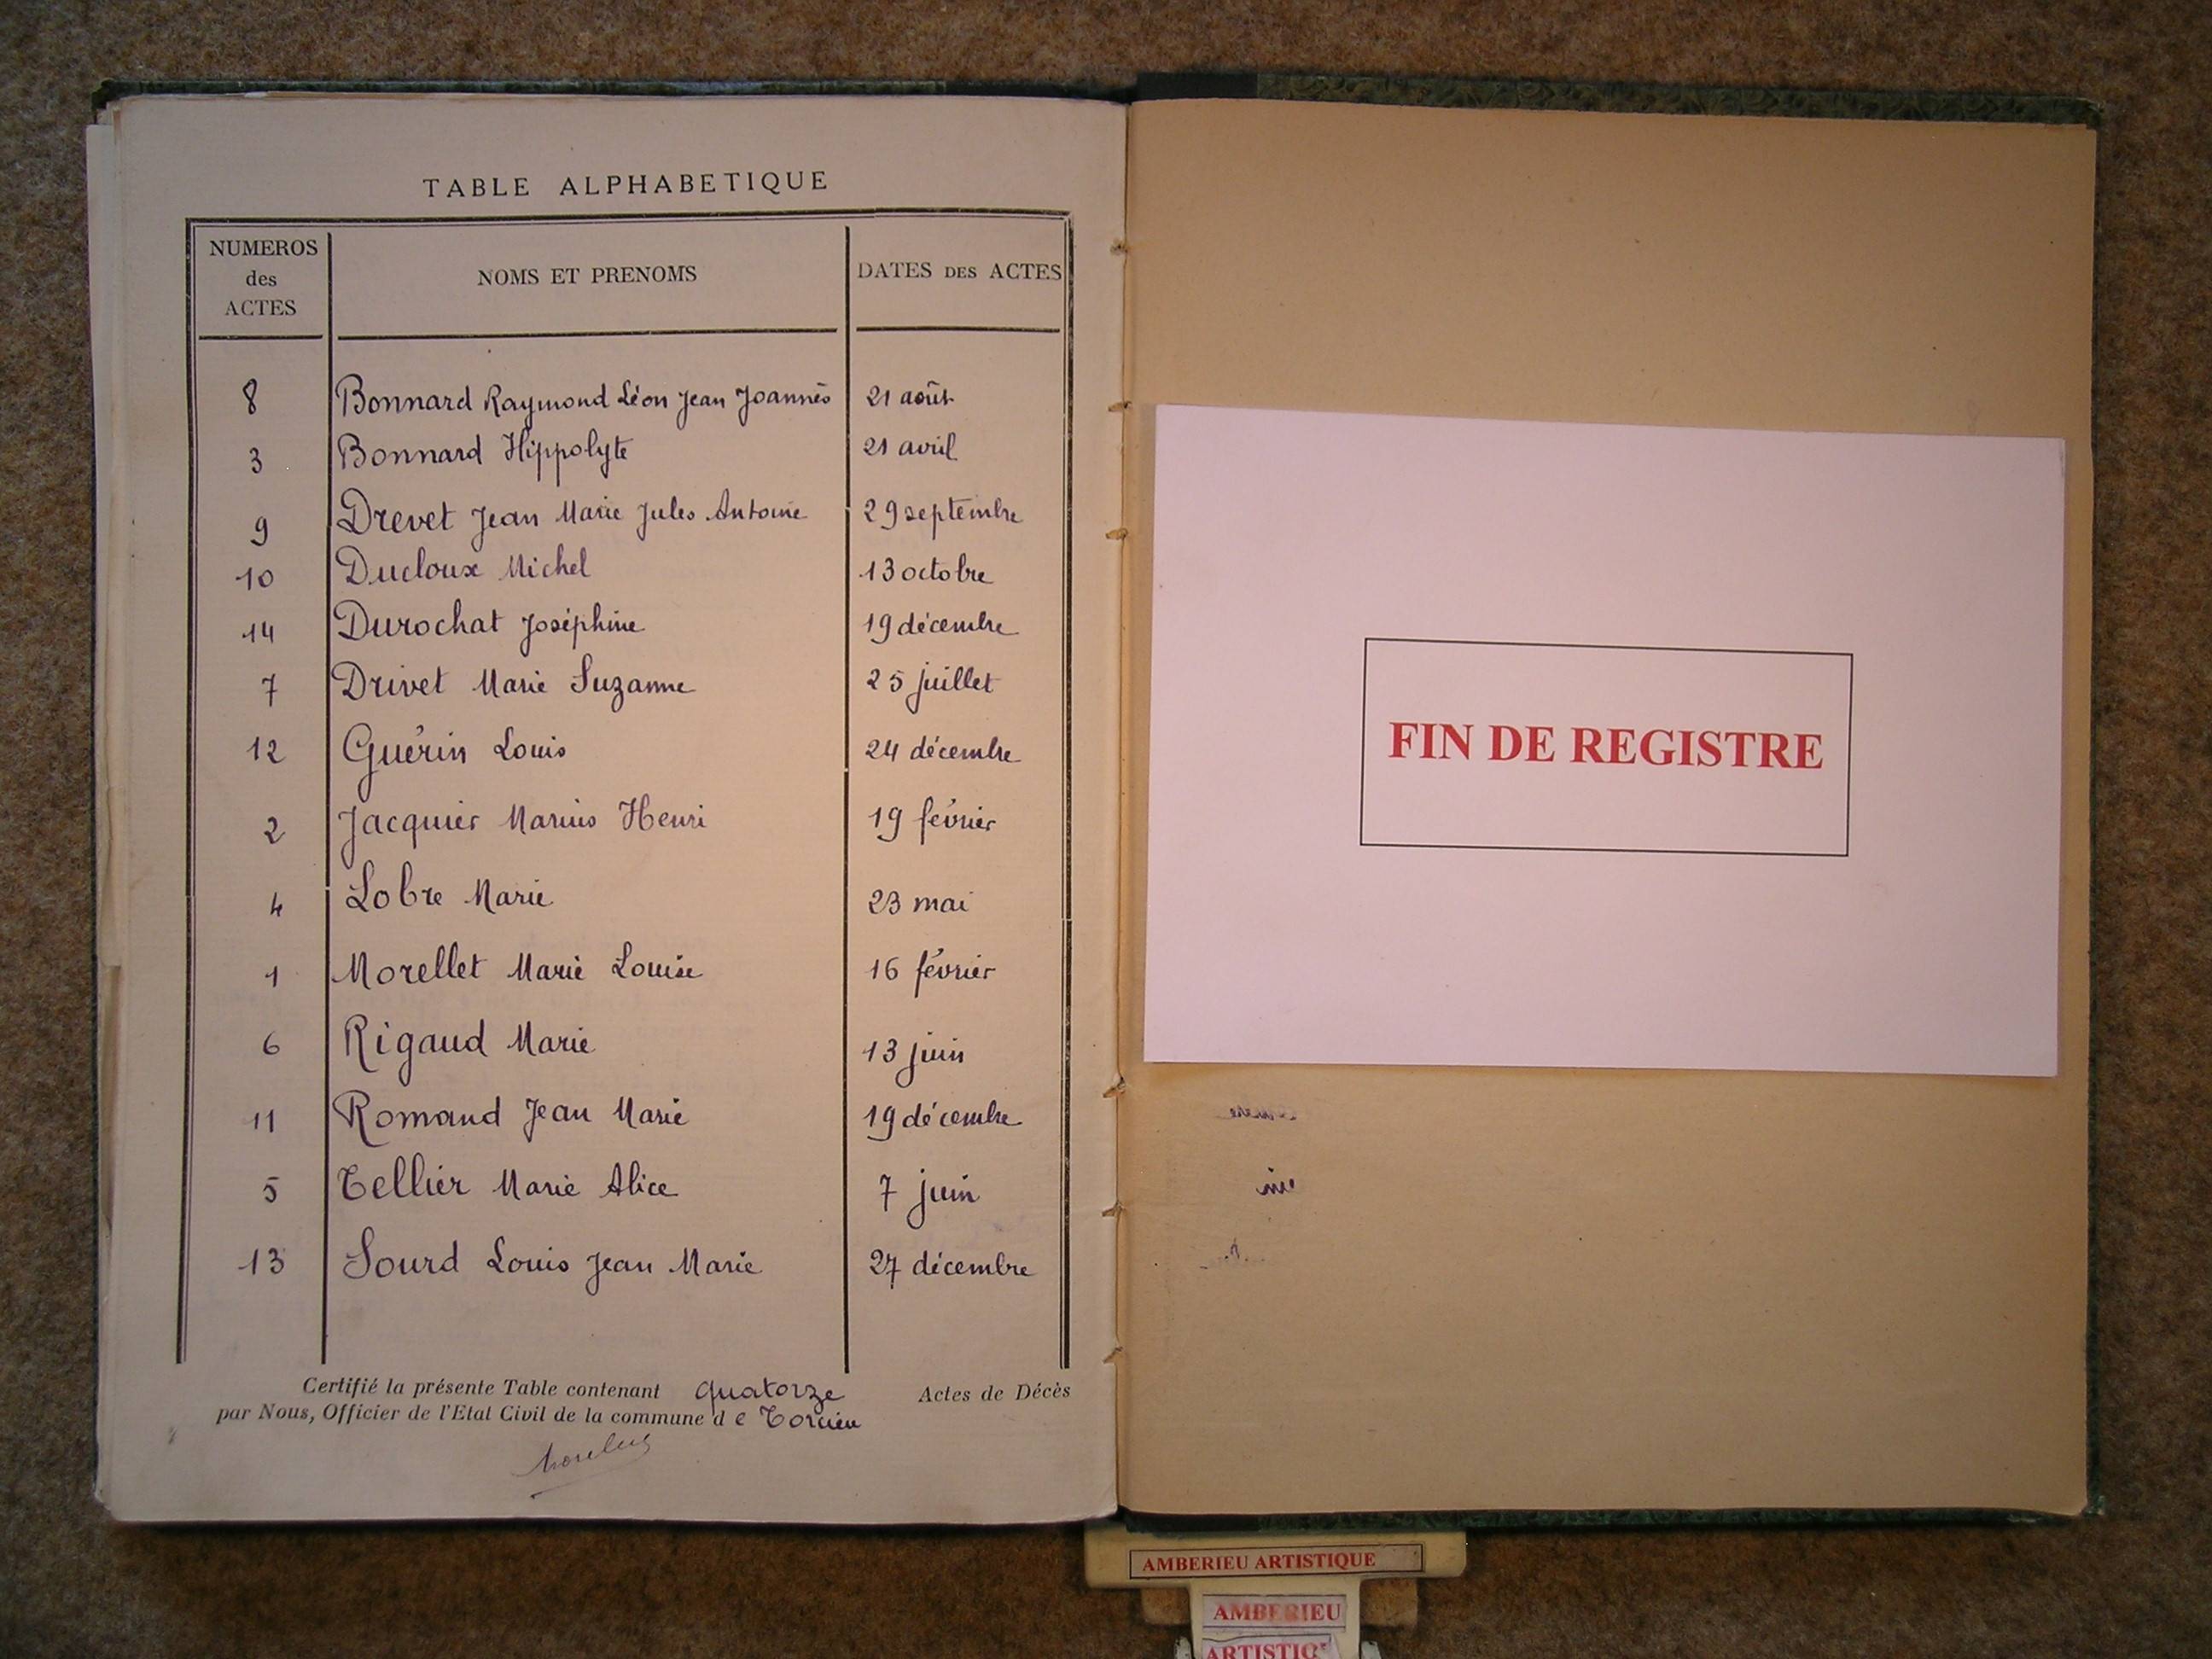 TABLE ALPHABETIQUE
NUMEROS des ACTES NOMS ET PRENOMS DATES DES ACTES
8 Bonnard Raymond Léon Jean Joannès 21 août
3 Bonnard Hippolyte 21 avril
9 Drevet Jean Marie Jules Antoine 29 septembre
10 Ducloux Michel 13 octobre
14 Durochat Joséphine 19 décembre
7 Drivet Marie Suzanne 25 juillet
12 Guérin Louis 24 décembre
2 Jacquier Marius Henri 19 février
4 Lobre Marie 23 mai
1 Morellet Marie Louise 16 février
6 Rigaud Marie 13 juin
11 Romand Jean Marie 19 décembre
5 Tellier Marie Alice 7 juin
13 Sourd Louis Jean Marie 27 décembre
Certifié la présente Table contenant quatorze Actes de Décès
par Nous, Officier de l'Etat Civil de la commune d e Torcieu
FIN DE REGISTRE
AMBERIEU ARTISTIQUE
AMBERIEU